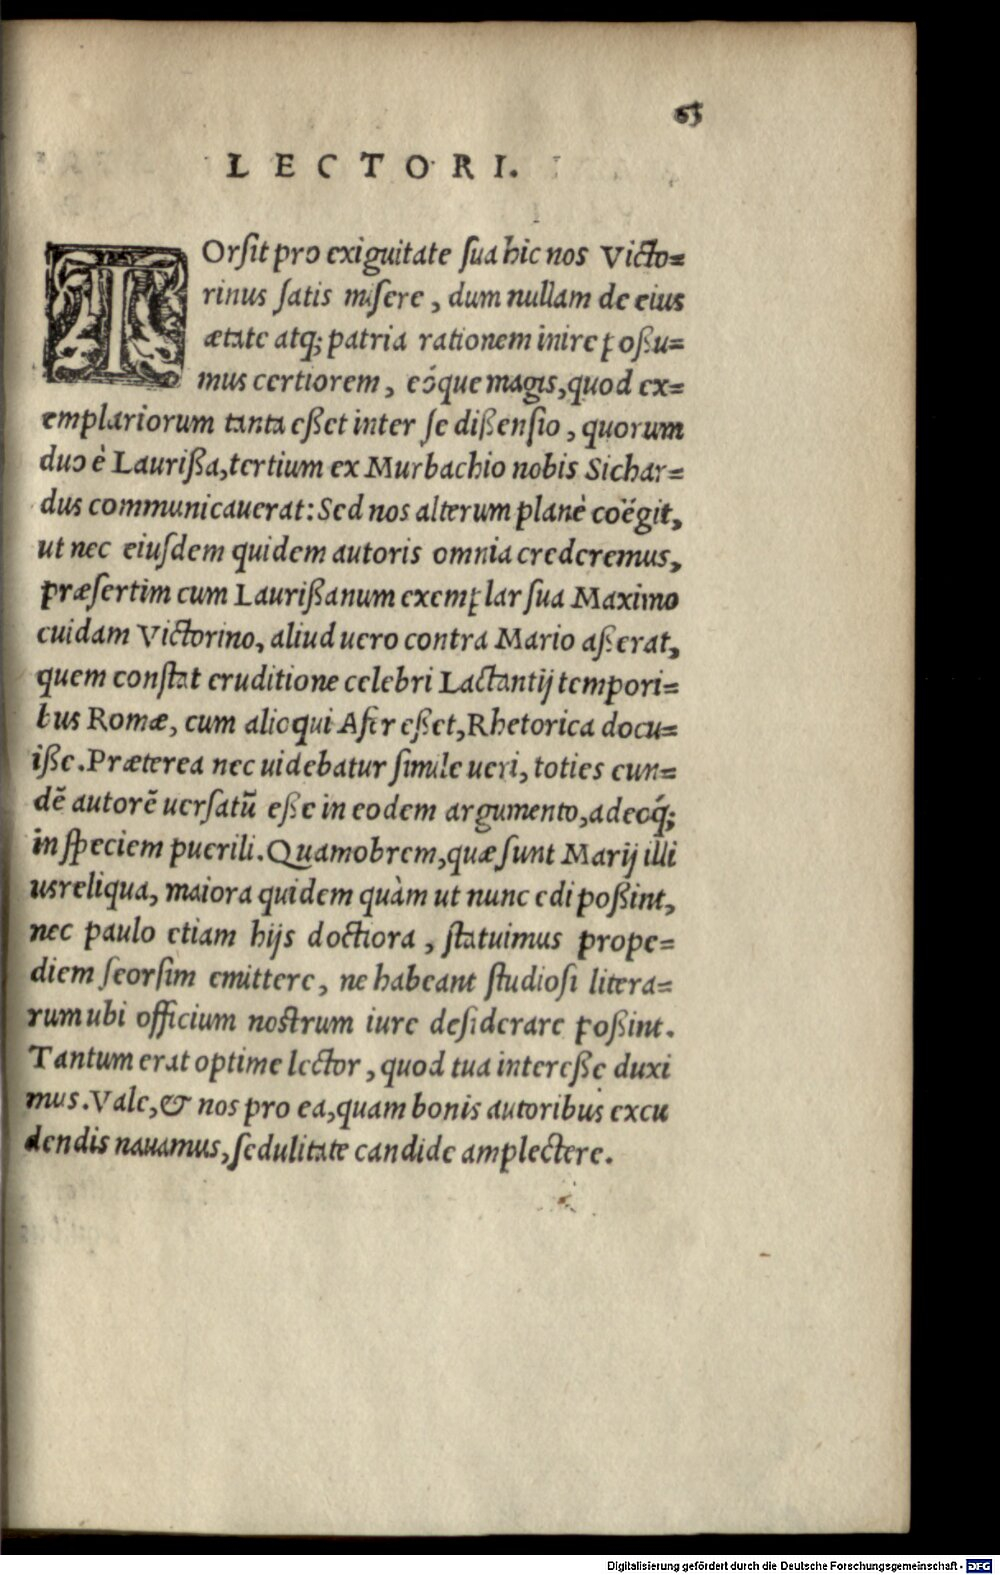 65
LECTORI.
TOrsit pro exiguitate sua hic nos Victo=
rinus satis misere, dum nullam de eius
ætate atq; patria rationem inire poßu=
mus certiorem, eóque magis, quod ex=
emplariorum tanta eßet inter se dißensio, quorum
duo è Laurißa, tertium ex Murbachio nobis Sichar=
dus communicauerat: Sed nos alterum planè coëgit,
ut nec eiusdem quidem autoris omnia crederemus,
præsertim cum Laurißanum exemplar sua Maximo
cuidam Victorino, aliud uero contra Mario aßerat,
quem constat eruditione celebri Lactantij tempori=
bus Romæ, cum alioqui Afer eßet, Rhetorica docu=
iße. Præterea nec uidebatur simile ueri, toties eun=
dē autorē uersatū eße in eodem argumento, adeoq́;
in speciem puerili. Quamobrem, quæ sunt Marij illi
usreliqua, maiora quidem quàm ut nunc edi poßint,
nec paulo etiam hijs doctiora, statuimus prope=
diem seorsim emittere, ne habeant studiosi litera=
rum ubi officium nostrum iure desiderare poßint.
Tantum erat optime lector, quod tua intereße duxi
mus. Vale, & nos pro ea, quam bonis autoribus excu
dendis nauamus, sedulitate candide amplectere.
Digitalisierung gefördert durch die Deutsche Forschungsgemeinschaft - DFG